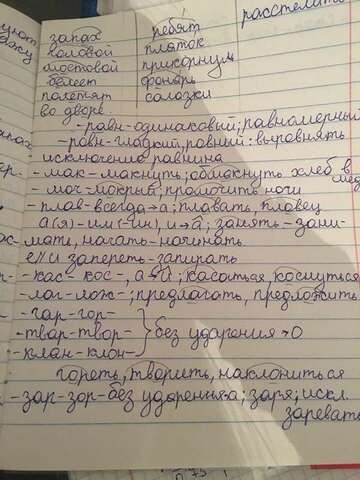 расстелить
запах ребят
половой платок
мостовой прикорнул
белеет фонарь
полетят салазки
во дворе
-равн-одинаковый; равномерный
-ровн-гладкий, ровный: выровнять
исключение равнина
-мак-макнуть; обмакнуть хлеб в мёд
-моч-мокрый; промочить ноги
-плав-всегда→а; плавать, пловец
а(я)-им(-ин), и→а; занять-зани-
мать, начать-начинать
е//и запереть-запирать
-кас- кос-, а→а; касаться, коснуться
-лаг-лож-; предлагать, предложить
-гар-гор-
-твар-твор- } без ударения→о
-клан-клон-
гореть, творить, наклониться
-зар-зор-без ударения-а; заря; искл.
зоревать